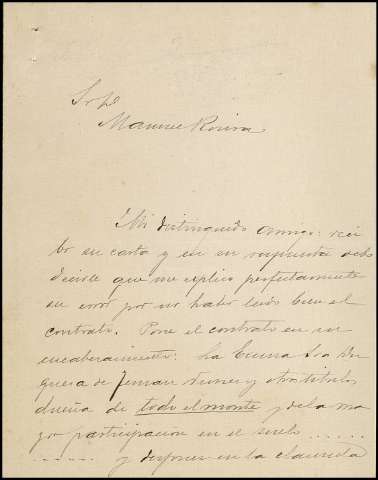 Sr D.
Manuel Rovira
Mi distinguido amigo: reci
bo su carta y en su respuesta debo
decirle que me esplico perfectamente
su error por no haber leido bien el
contrato. Pone el contrato en su
encabezamiento: La Excma Sra Du
quesa de Fernan Nuñez y otros titulos
dueña de todo el monte y de la ma
yor participación en el suelo ......
...... y despues en la clausula